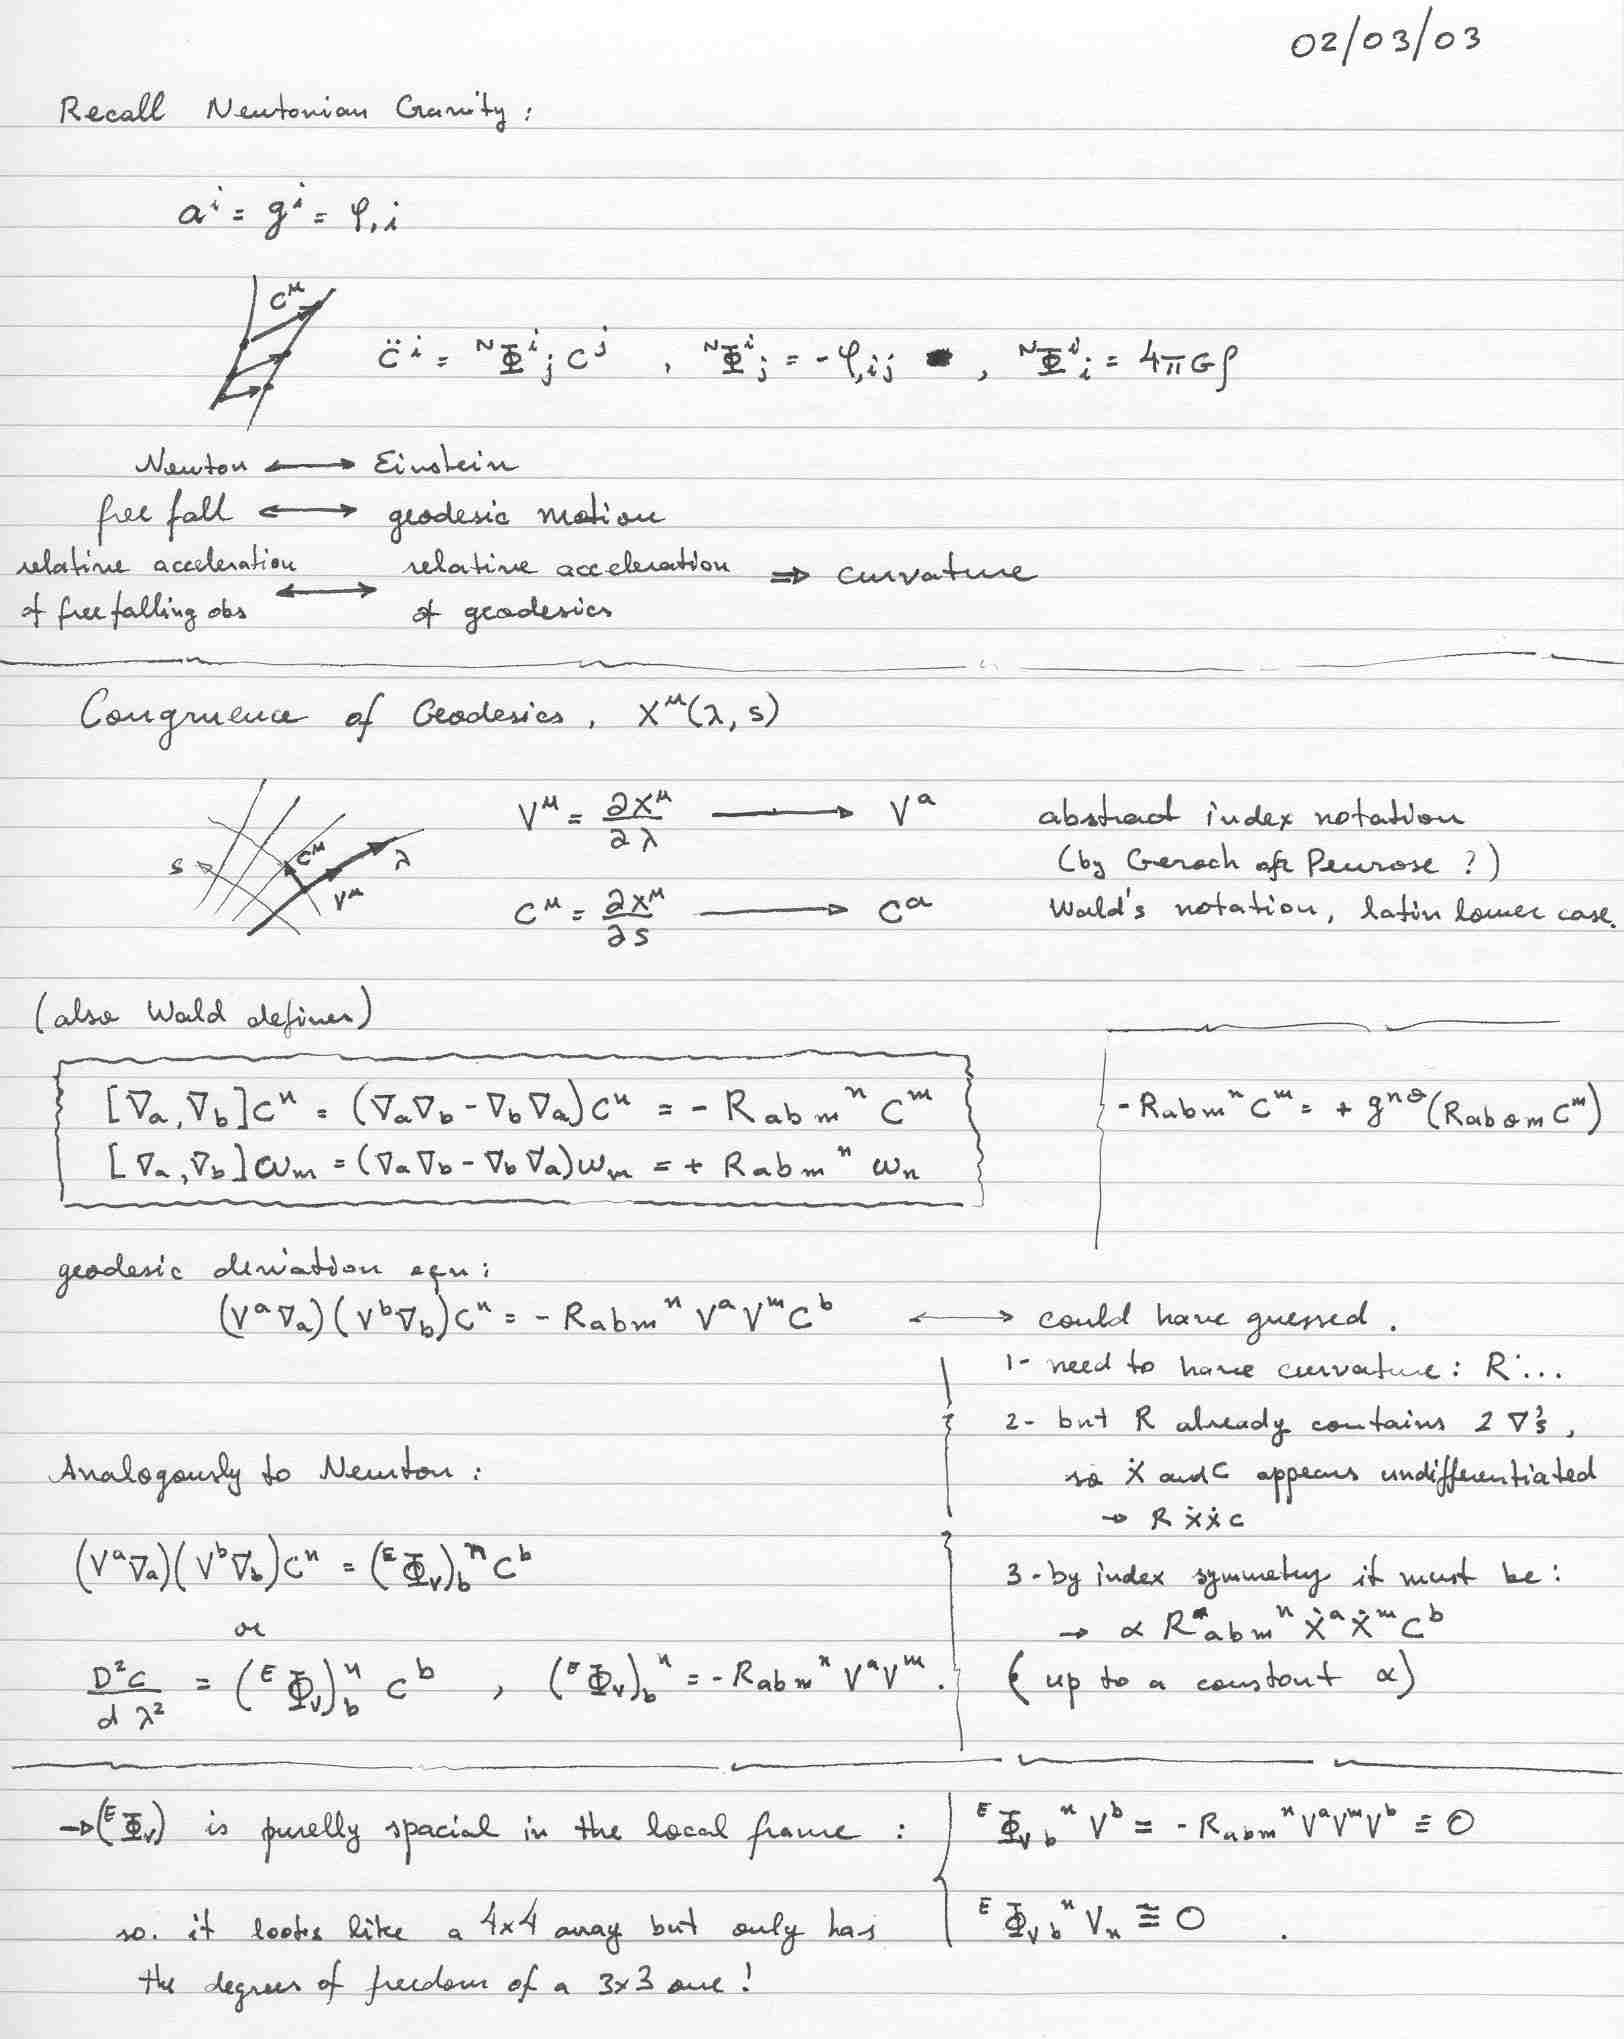 02/03/03
Recall Newtonian Gravity:
aⁱ = gⁱ = φ,i
C^μ
c̈ⁱ = ᴺΦⁱⱼ Cʲ , ᴺΦⁱⱼ = -φ,ij , ᴺΦⁱᵢ = 4πGρ
Newton ⟷ Einstein
free fall ⟷ geodesic motion
relative acceleration of free falling obs ⟷ relative acceleration of geodesics ⇒ curvature
Congruence of Geodesics, X^μ(λ, s)
s C^μ V^μ λ
V^μ = ∂X^μ/∂λ ⟶ V^a abstract index notation
(by Geroch or Penrose ?)
C^μ = ∂X^μ/∂s ⟶ C^a Wald's notation, latin lower case.
(also Wald defines)
[∇a, ∇b]C^n = (∇a∇b - ∇b∇a)C^n = - R_abm^n C^m
[∇a, ∇b]ω_m = (∇a∇b - ∇b∇a)ω_m = + R_abm^n ω_n
-R_abm^n C^m = + g^nθ(R_abθm C^m)
geodesic deviation eqn:
(V^a∇a)(V^b∇b)C^n = - R_abm^n V^a V^m C^b ⟷ could have guessed.
1- need to have curvature: R˙...
2- but R already contains 2 ∇'s,
so ẋ and C appears undifferentiated
→ R ẋẋc
3- by index symmetry it must be:
→ α R_abm^n ẋ^a ẋ^m C^b
(up to a constant α)
Analogously to Newton:
(V^a∇a)(V^b∇b)C^n = (ᴱΦ_V)_b^n C^b
or
D²C/dλ² = (ᴱΦ_V)_b^n C^b , (ᴱΦ_V)_b^n = -R_abm^n V^a V^m .
→(ᴱΦ_V) is purelly spacial in the local frame :
so. it looks like a 4x4 array but only has
the degrees of freedom of a 3x3 one!
ᴱΦ_Vb^n V^b = - R_abm^n V^a V^m V^b ≡ 0
ᴱΦ_Vb^n V_n ≡ 0 .